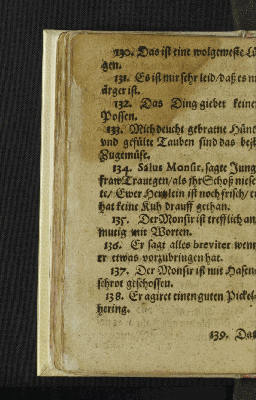 130. Das ist eine wolgeweste Lü
gen.
131. Es ist mir sehr leid/ daß es ni
ärger ist.
132. Das Ding giebet keine
Possen.
133. Mich deucht gebratne Hün
vnd gefülte Tauben sind das best
Zugemüse.
134. Salus Monsir, sagte Jung
fraw Trautgen/ als jhr Schoß niese
te/ Ewer Hertzlein ist noch frisch/ es
hat keine Kuh drauff gethan.
135. Der Monsir ist trefflich an
mutig mit Worten.
136. Er sagt alles breviter wenn
er etwas vorzubringen hat.
137. Der Monsir ist mit Hasen
schrot geschossen.
138. Er agiret einen guten Pickel
hering.
139. Das